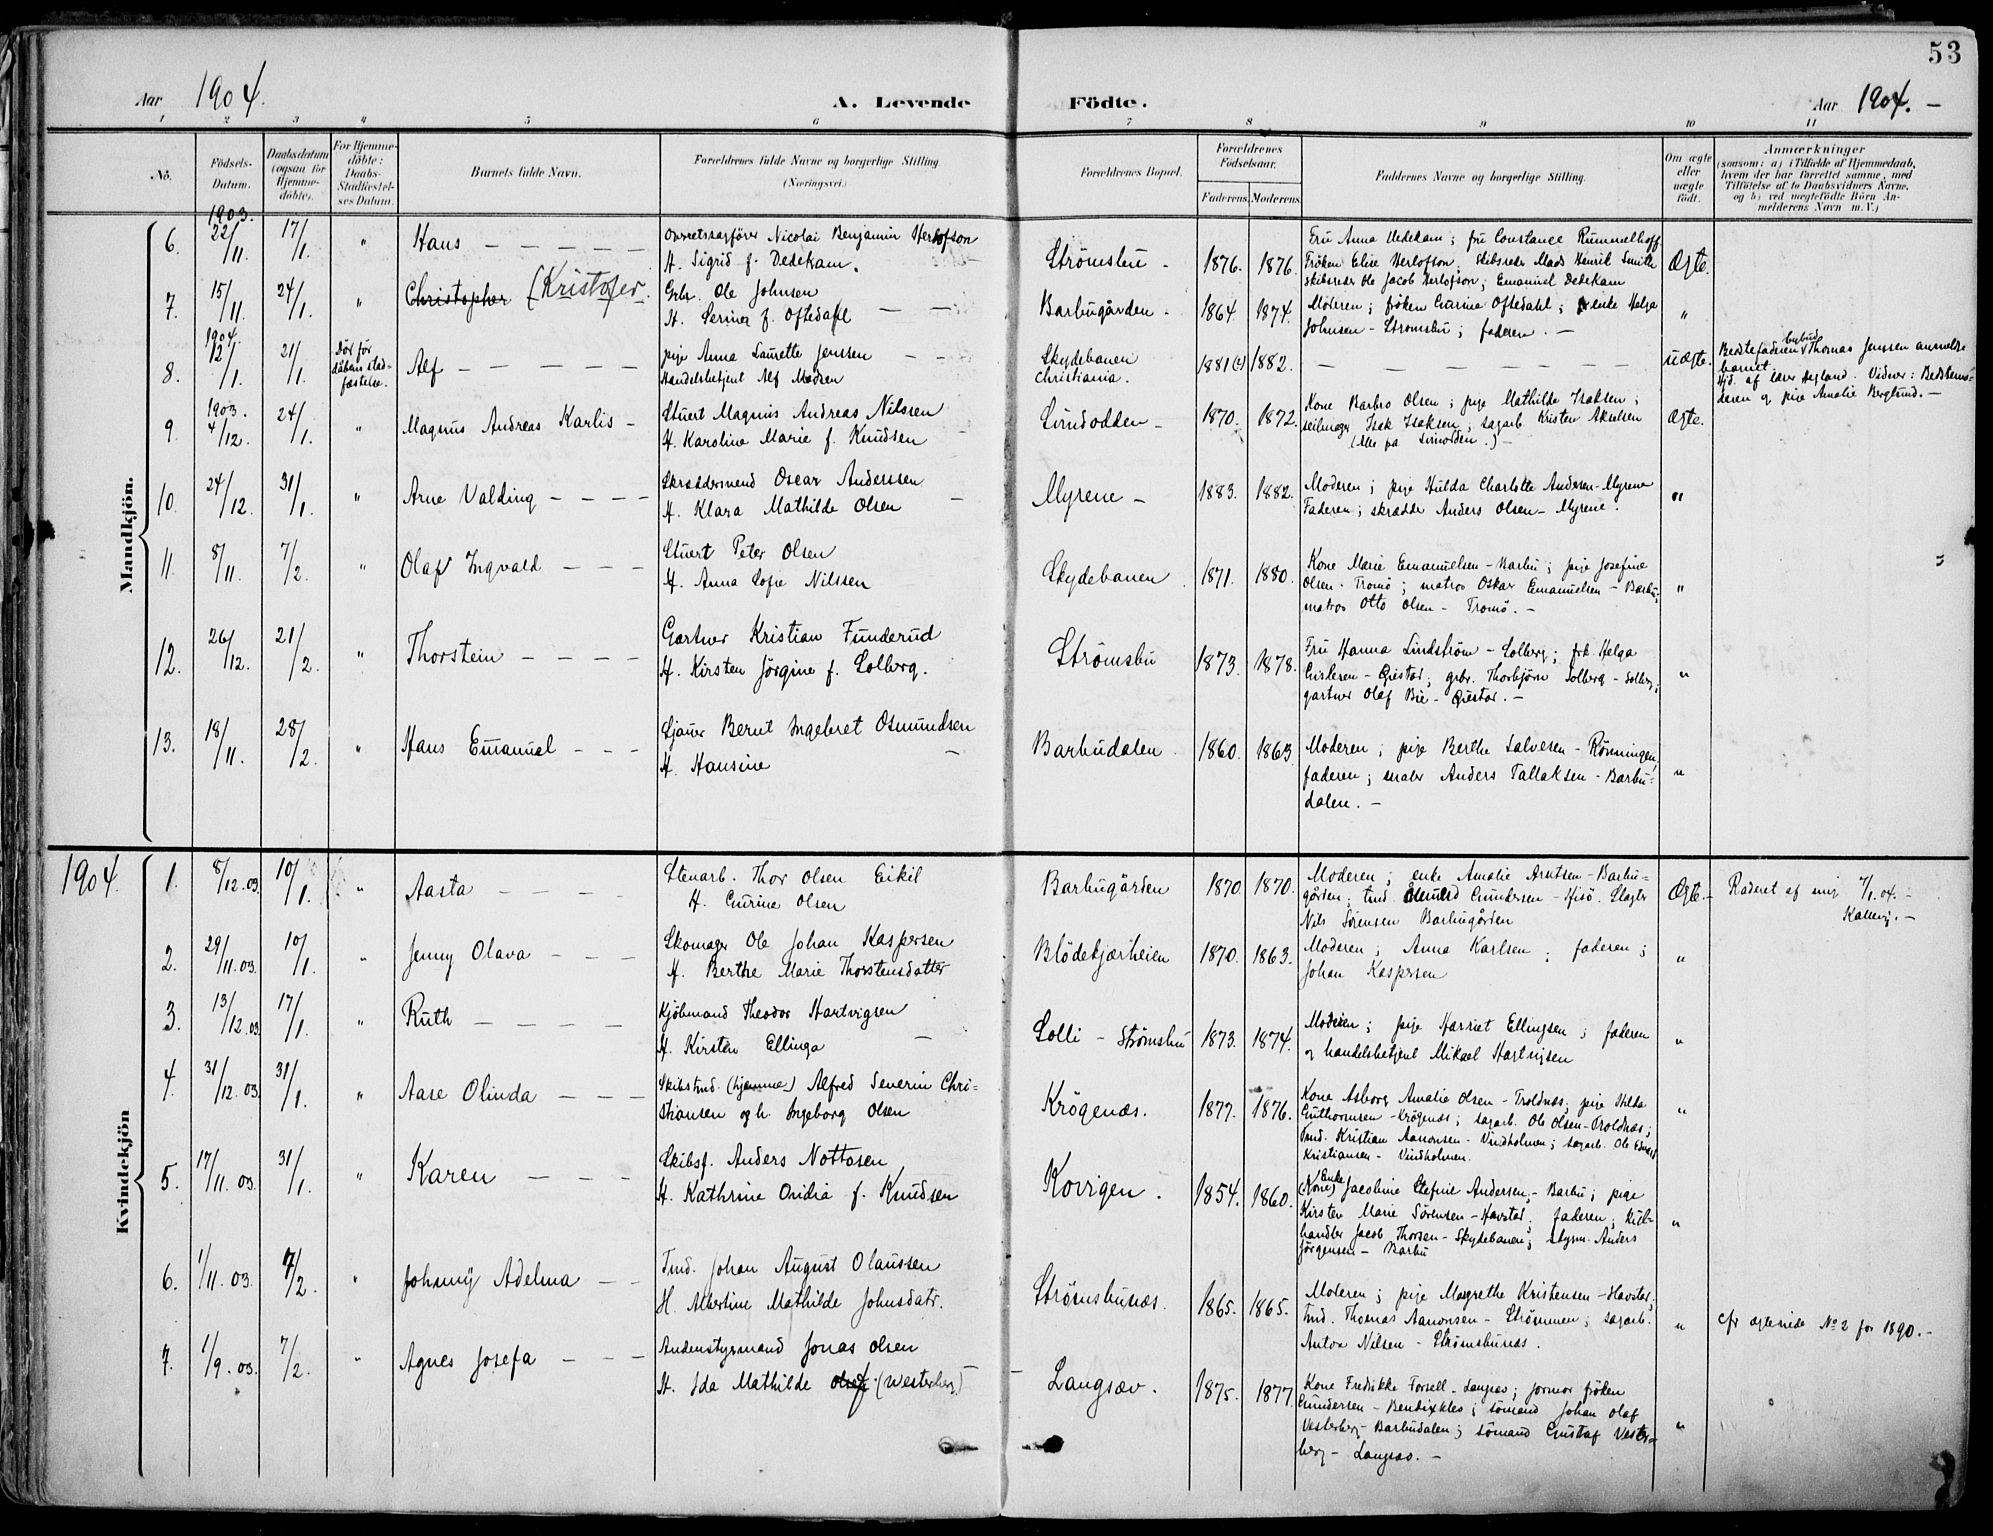 53
Aar 1904.
A. Levende Födte.
Aar 1904. –
1 2 3 4 5 6 7 8 9 10 11
No.
Födsels-Datum.
Daabsdatum (ogsaa for Hjemmedöbte).
For Hjemmedöbte: Daabs-Stadfæstelses Datum.
Barnets fulde Navn.
Forældrenes fulde Navne og borgerlige Stilling (Næringsvei.)
Forældrenes Bopæl.
Forældrenes Födselsaar.
Faderens. Moderens.
Faddernes Navne og borgerlige Stilling.
Om ægte eller uægte födt.
Anmærkninger
(saasom: a) i Tilfælde af Hjemmedaab, hvem der har forrettet samme, med Tilföielse af to Daabsvidners Navne, og b) ved uægtefödte Börn Anmelderens Navn m. V.)
Mandkjön.
1903.
6. 22/11. 17/1. " Hans – – – –
Overretssagförer Nicolai Benjamin Herlofson
H. Sigrid f. Dedekam.
Strömsbu – 1876. 1876.
Fru Anna Dedekam; fru Constance Rummelhoff
Fröken Elise Herlofson; Skibsreder Mads Henrik Smith
Skibsreder Ole Jacob Herlofson; Emanuel Dedekam
Ægte.
7. 15/11. 24/1. " Christopher (Kristofer
Grbr. Ole Johnsen
H. Serina f. Oftedahl – –
Barbugården – 1864. 1874.
Moderen; fröken Oftedahl; enke Helga
Johnsen – Strömsbu; faderen. –
"
1904.
8. 12/1. 21/1. Död för dåbens stadfæstelse. Alf – – – – –
pige Anna Laurette Jenssen – –
Handelsbetjent Alf Madsen
Skydebanen
Christiania. 1881(?) 1882.
– – – – – – –
uægte.
Bedstefaderen Thomas Jenssen anmeldte
barnet.
Hjd. af lærer Løgland. Vidner: Bedstemo-
deren og pige Amalie Berglund. –
1903.
9. 4/12. 24/1. " Magnus Andreas Karlis –
Stuert Magnus Andreas Nilssen
H. Karoline Marie f. Knudsen –
Sandodden – 1870. 1872.
Kone Barbro Olsen; pige Mathilde Isaksen;
seilmager Isak Isaksen; sagarb. Kristen Akselsen
Ægte.
10. 24/12. 31/1. " Arne Valding – – – –
Skræddersvend Oscar Anderssen
H. Klara Mathilde Olsen –
Myrene – 1883. 1882.
Moderen; pige Hulda Charlotte Andersen – Myrene
Faderen; skrædder Anders Olsen – Myrene.
"
11. 8/11. 7/2. " Olaf Ingvald – – –
Stuert Peter Olsen
H. Anna Sofie Nilssen
Skydebanen 1871. 1880.
Kone Marie Emanuelsen – Barbu; pige Josefine
Olsen – Tromö; matros Oskar Emanuelsen – Barbu;
matros Otto Olsen – Tromö. –
"
12. 26/12. 21/2. " Thorstein – – – –
Gartner Kristian Funderud
H. Kirsten Jörgine f. Solberg.
Strömsbu 1873. 1878.
Fru Hanna Lindström – Solberg; frk. Helga
gbr. Thorbjörn Solberg – Solberg;
gartner Olaf Bie –
"
13. 18/11. 28/2. " Hans Emanuel – – –
Sjauer Bernt Ingebret Osmundsen
H. Hansine –
Barbudalen 1860. 1863
Moderen; pige Berthe Salvesen – Rönningen,
faderen; maler Anders Tallaksen – Barbu-
dalen. –
"
Kvindekjön
1904.
1. 8/12.03. 10/1. " Aasta – – –
Stenarb. Thor Olsen Eikil
H. Gurine Olsen
Barbugården 1870. 1870.
Moderen; enke Amalie Arntsen – Barbu-
gården; tmd. Gundersen – Hisö. Slagter
Nils Sörensen Barbugården
Ægte. –
Raderet af mig 7/1.04. –
Kallevig. –
2. 29/11.03. 10/1. " Jenny Olava – – –
Skomager Ole Johan Kaspersen
H. Berthe Marie Thorstensdatter
Blödekjærheien 1870. 1863.
Moderen; Anna Karlsen; faderen;
Johan Kaspersen
"
3. 13/12.03. 17/1. " Ruth – – – –
Kjöbmand Theodor Hartvigsen
H. Kirsten Ellinga –
Solli – Strömsbu 1873. 1874.
Moderen; pige Harriet Ellingsen; faderen
og handelsbetjent Mikael Hartvigsen
"
4. 31/12.03. 31/1. " Aase Olinda – – –
Skibstmd. (hjemme) Alfred Severin Chri-
stiansen og h. Ingeborg Olsen
Krögenæs. 1877. 1876.
Kone Asborg Amalie Olsen – Troldnæs; pige Hilda
Guthormsen – Krögenæs; sagarb. Ole Olsen – Troldnæs;
Tmd. Kristian Aanonsen – Vindholmen; sagarb. Ole Edvard
Kristiansen – Vindholmen.
"
5. 17/11.03. 31/1. " Karen – – –
Skibsf. Anders Nottosen
H. Kathrine Ovidia f. Knudsen
Kovigen. 1854. 1860.
Enke
(Kone) Jacobine Stefine Andersen, – Barbu; pige
Kirsten Marie Sörensen – Havstad; faderen; kul-
handler Jacob Thorsen – Skydebanen; styrm. Anders
Jörgensen – Barbu
"
6. 1/11.03. 7/2. " Johnny Adelma – –
Tmd. Johan August Olaussen
H. Albertine Mathilde Johnsdatr.
Strömsbunæs. 1865. 1865.
Moderen; pige Margrethe Kristensen – Havstad;
tmd. Thomas Aanonsen – Strömmen; sagarb.
Anton Nilsen – Strömsbunæs.
"
cfr ægteviede No 2 for 1890. –
7. 1/9.03. 7/2. " Agnes Josefa – – –
Andenstyrmand Jonas Olsen
H. Ida Mathilde (Westerberg)
Langsæv. 1875. 1877
Kone Fredrikke Forsell – Langsæv; jormor fröken
Gundersen – Bendixklev; sömand Johan Olaf
Vesterberg – Barbudalen; sömand Gustaf Vester-
berg – Langsæv. –
"